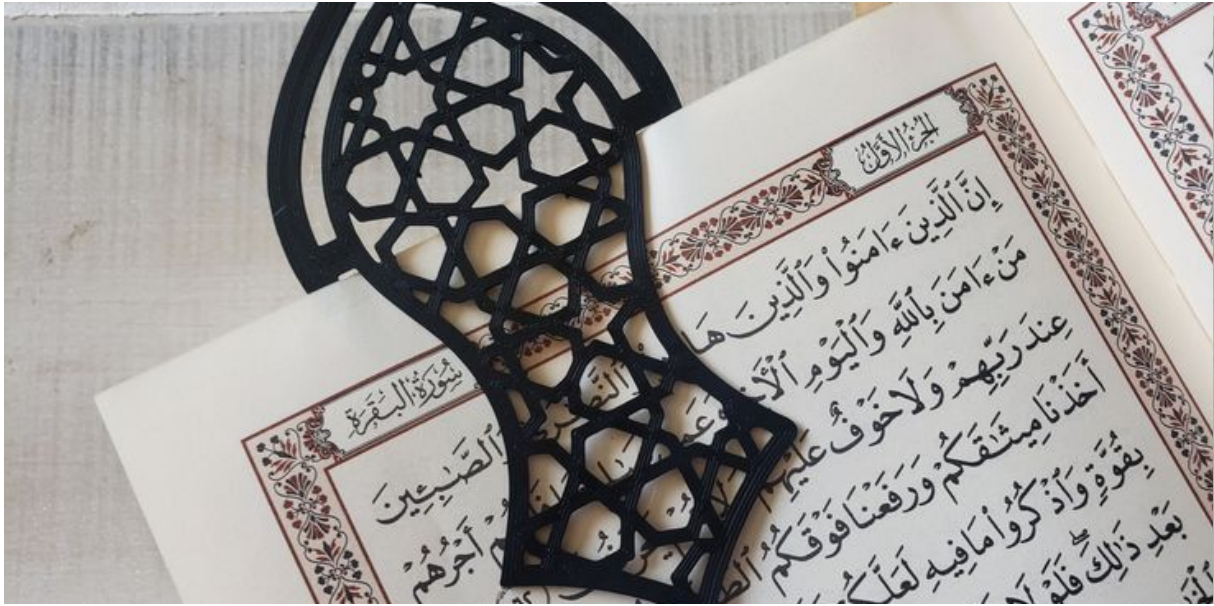 الجزء الأول
سورة البقرة
إِنَّ ٱلَّذِينَ ءَامَنُوا۟ وَٱلَّذِينَ هَا وَٱلنَّصَٰرَىٰ وَٱلصَّٰبِـِٔينَ
مَنْ ءَامَنَ بِٱللَّهِ وَٱلْيَوْمِ ٱلْأَخِرِ وَعَمِلَ أَجْرُهُمْ
عِندَ رَبِّهِمْ وَلَا خَوْفٌ عَلَيْهِمْ
أَخَذْنَا مِيثَٰقَكُمْ وَرَفَعْنَا فَوْقَكُمُ
بِقُوَّةٍ وَٱذْكُرُوا۟ مَا فِيهِ لَعَلَّكُمْ
بَعْدِ ذَٰلِكَ ۖ فَلَوْلَا